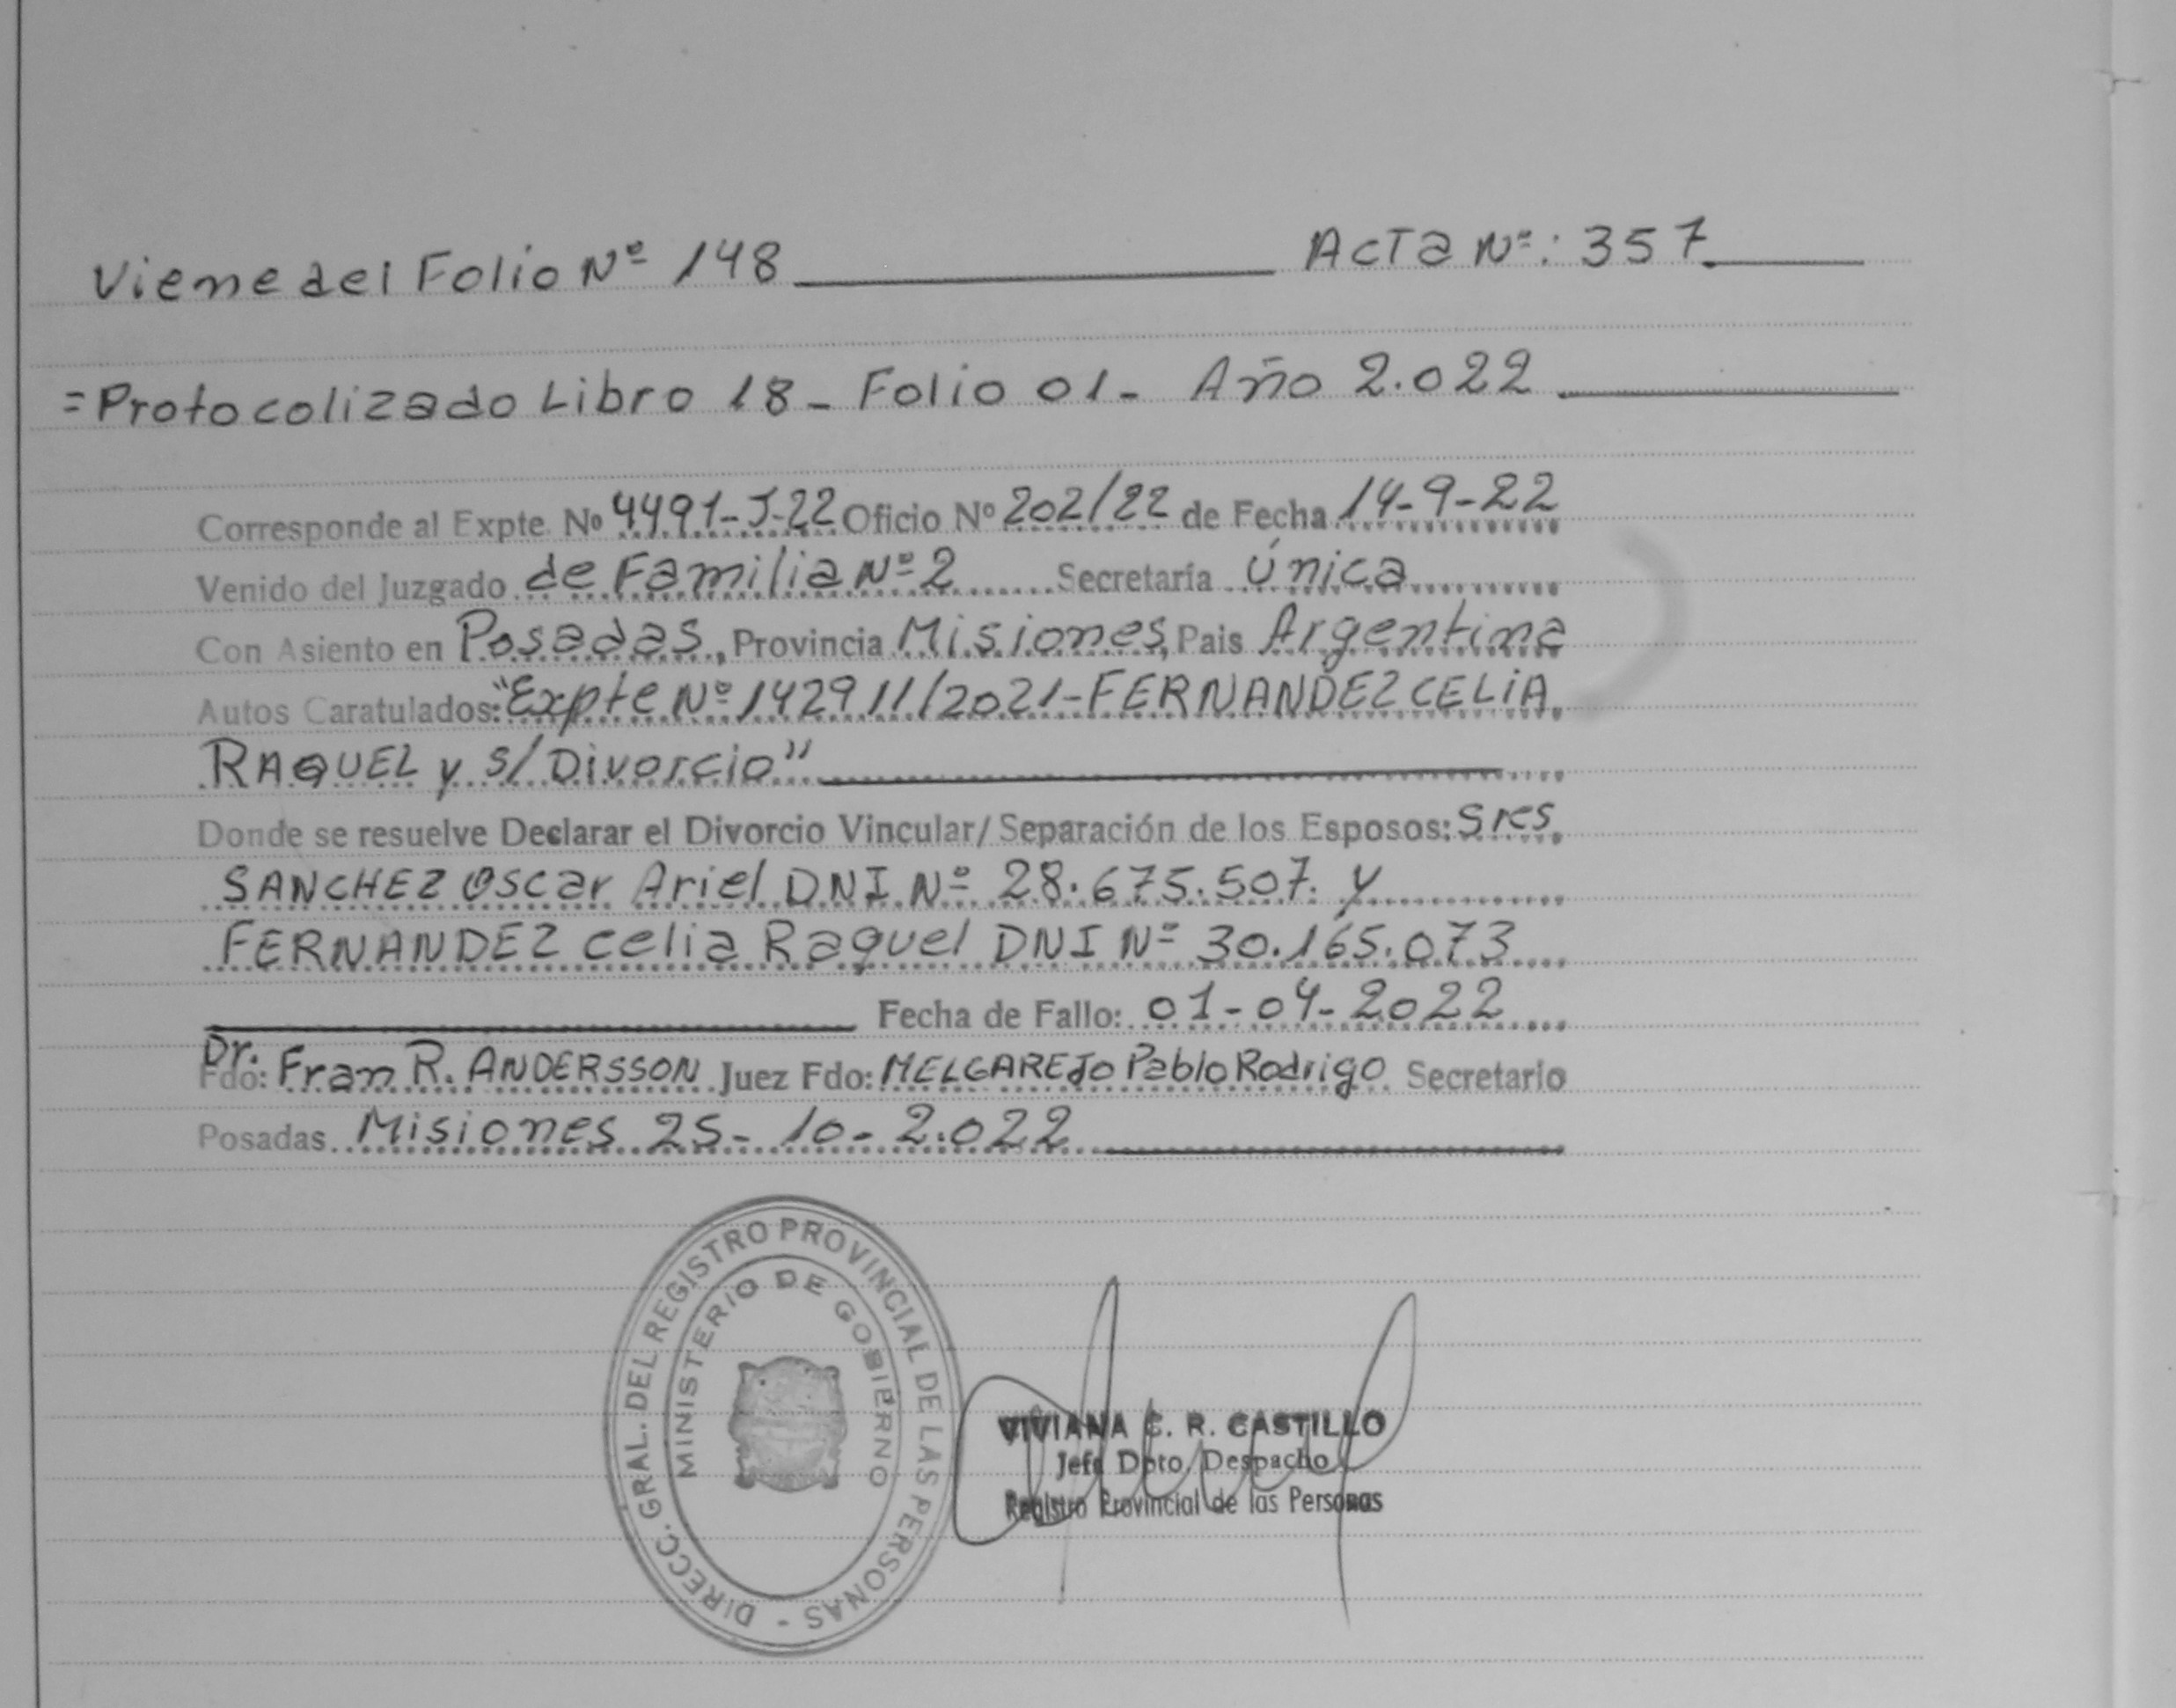 Viene del Folio Nº 148 Acta Nº: 357
=Protocolizado Libro 18- Folio 01- Año 2.022
Corresponde al Expte. Nº 4491-J-22 Oficio Nº 202/22 de Fecha 14-9-22
Venido del Juzgado de Familia Nº 2 Secretaría única
Con Asiento en Posadas, Provincia Misiones, Pais Argentina
Autos Caratulados: "Expte Nº 142911/2021-FERNANDEZ CELiA
RAQUEL y s/ Divorcio"
Donde se resuelve Declarar el Divorcio Vincular/ Separación de los Esposos: Sres
SANCHEZ Oscar Ariel DNI Nº 28.675.507. y
FERNANDEZ Celia Raquel DNI Nº 30.165.073
Fecha de Fallo: 01-04-2022
Dr.
Fdo: Fran R. ANDERSSON Juez Fdo: MELGAREJO Pablo Rodrigo Secretario
Posadas Misiones 25-10-2.022
DIRECC. GRAL. DEL REGISTRO PROVINCIAL DE LAS PERSONAS -
MINISTERIO DE GOBIERNO
VIVIANA C. R. CASTILLO
Jefe Dpto. Despacho
Registro Provincial de las Personas